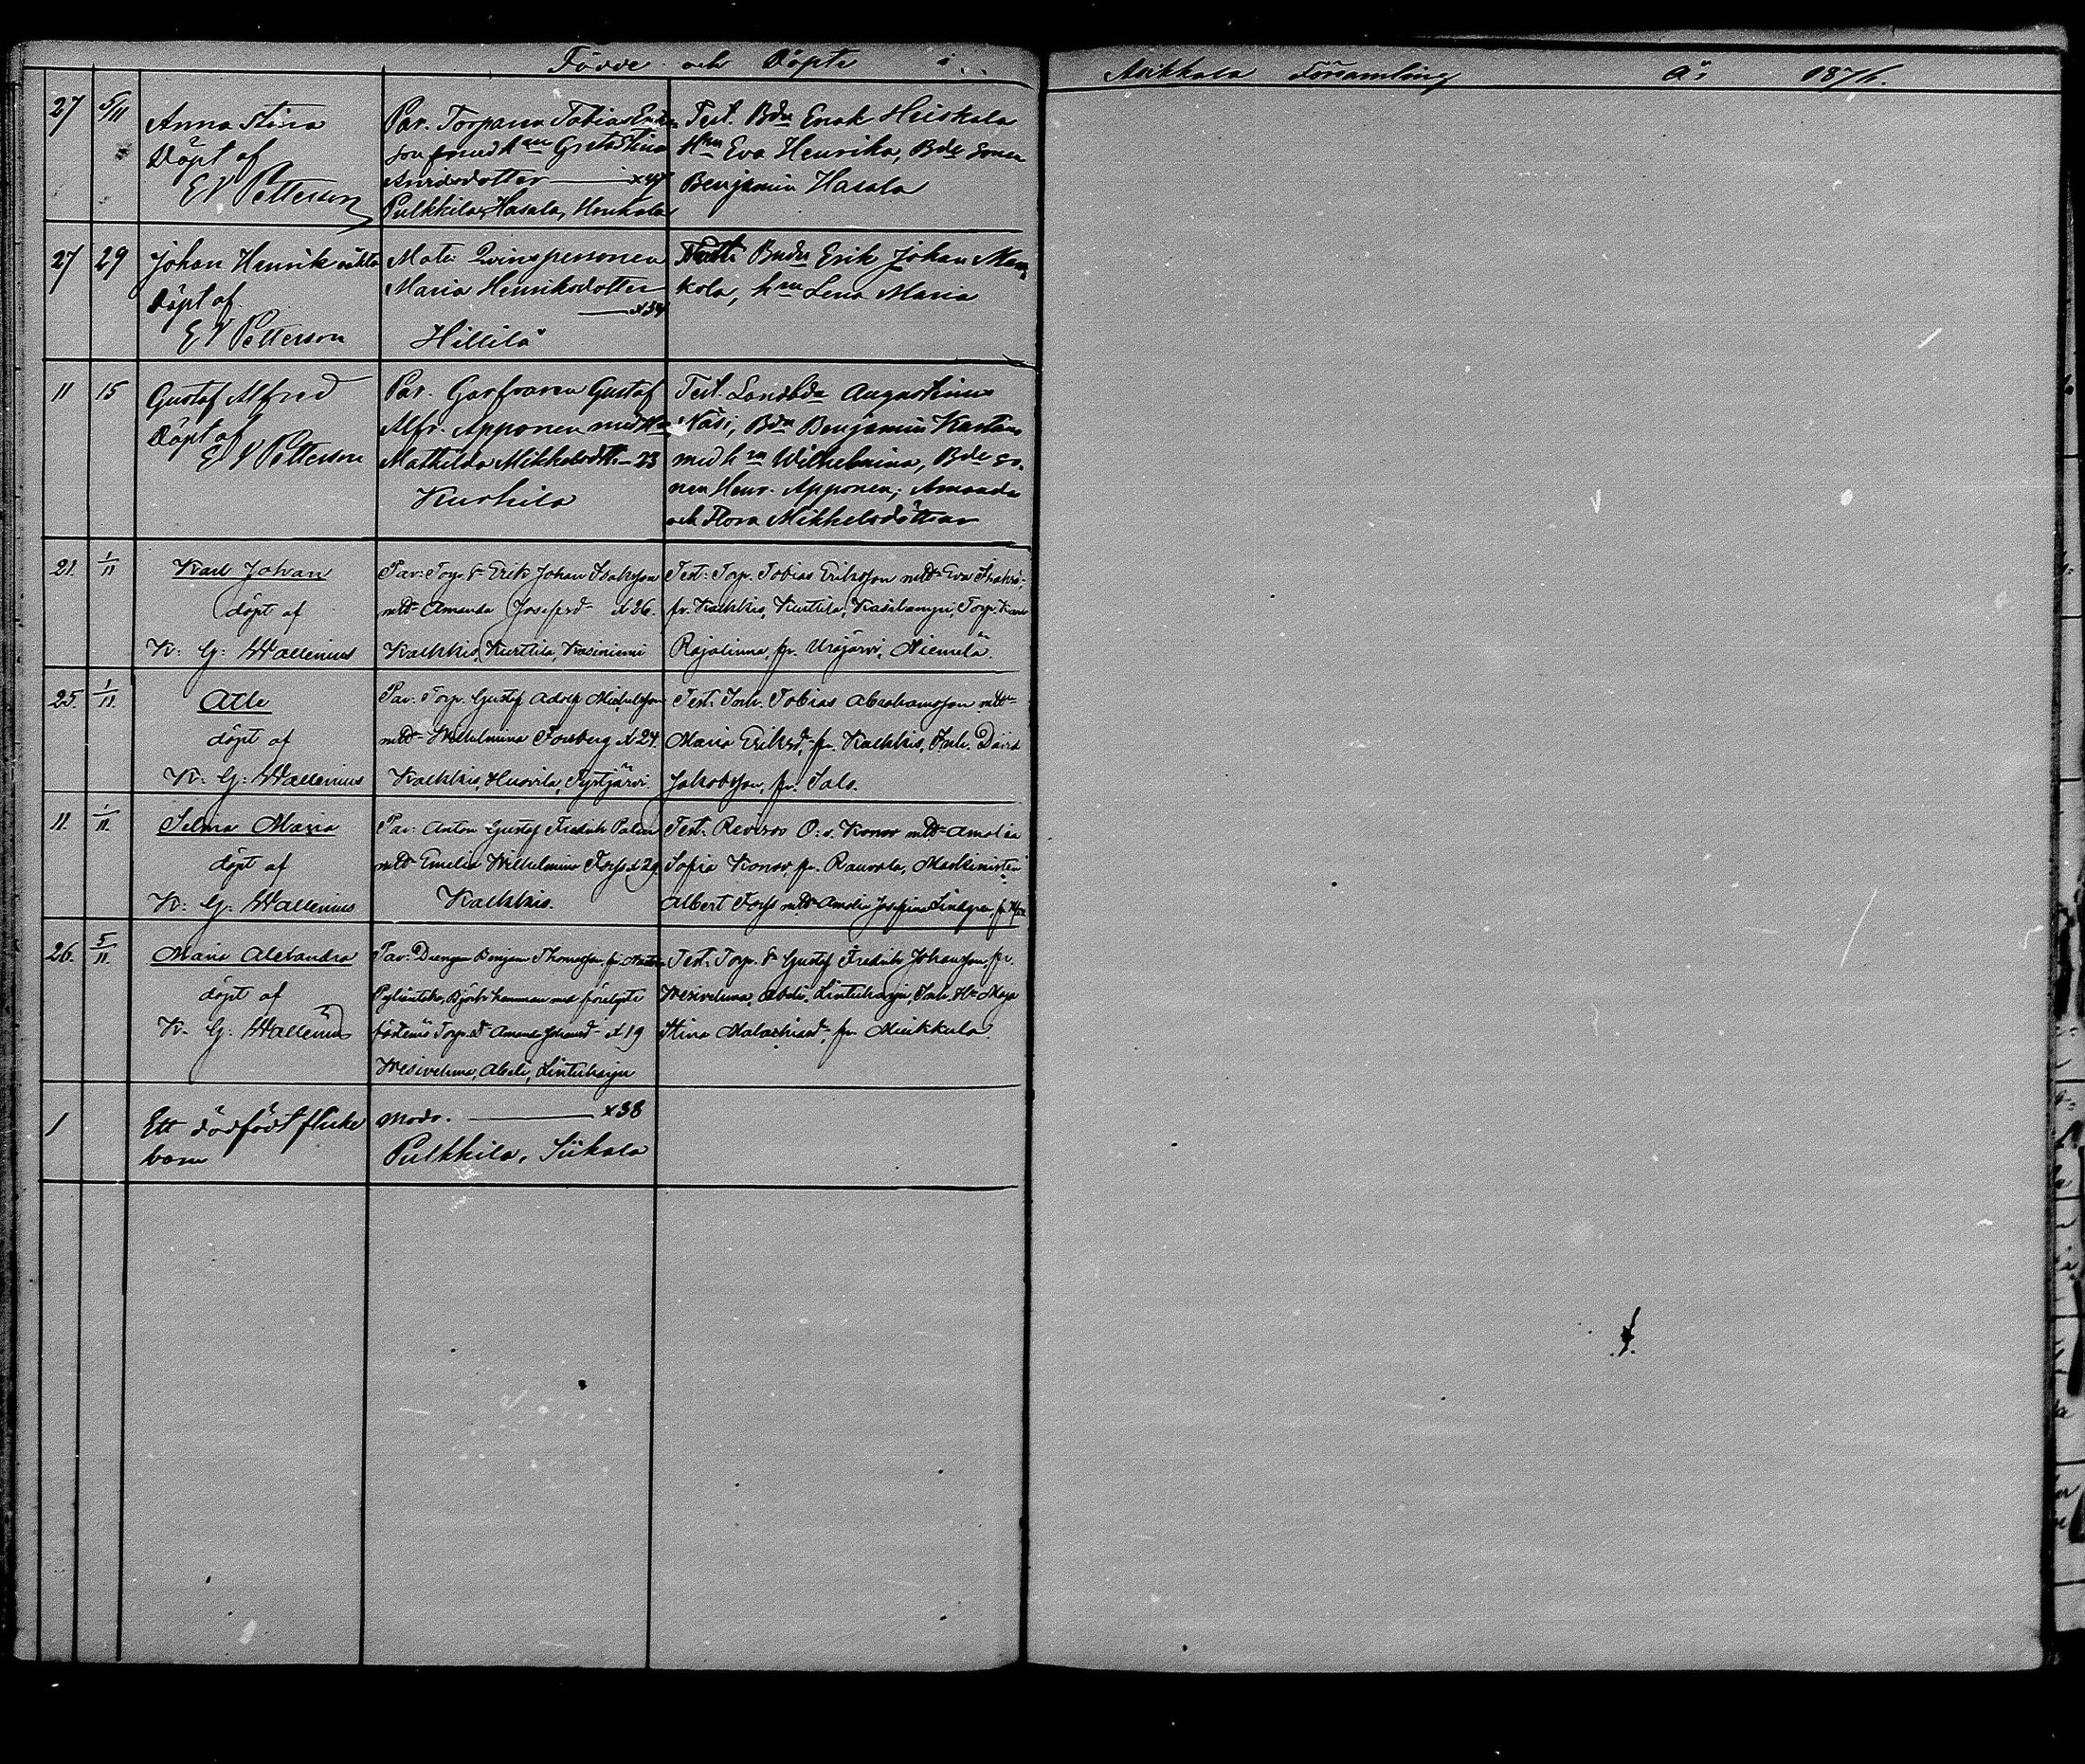 Födde och Döpte i Asikkala Församling År 1876.
27 5/11 Anna Stina
Döpt af
E V Petterson
Par. Torparen Tobias
son med hu Greta Stina
dotter x47
Pulkkila, Hasala,
Test. Bdn Enok Heiskala
Hu Eva Henrika, Bde sonen
Benjamin Hasala
27 29 Johan Henrik oäkta
Döpt af
E V Petterson
Mater Qvinspersonen
Maria Henriksdotter
x34
Hillilä
Bndn Erik Johan
kola, hu Lena Maria
11 15 Gustaf Alfred
Döpt af
E V Petterson
Par. Garfvaren Gustaf
Alfr. Apponen med Hu
Mathilda Mikkelsdtr 23
Kurhila
Test. Landbdn Augustinus
Näsi, Bdn Benjamin
med hu Wilhelmina, Bde so-
nen Henr. Apponen, Amanda
och Flora Mikkelsdöttrar
21. 1/11 Karl Johan
döpt af
K: G: Wallenius
Par: Torp. s. Erik Johan Isaksson
m hu Amanda Josefsd. x 26.
Kalkkis, Kurtila, Kasiniemi
Test: Torp. Tobias Eriksson m hu Eva
fr. Kalkkis, Kurtila, Torp. Karl
Rajalinna, fr. Urajärvi, Niemelä.
25. 1/11. Atle
döpt af
K: G: Wallenius
Par: Torp. Gustaf Adolf Michelsson
m hu Wilhelmina Forsberg x 24.
Kalkkis, Huovila, Syrjärvi.
Test: Inh. Tobias Abrahamsson m hu
Maria Eriksd. fr. Kalkkis, Inh. David
Jakobsson, fr. Salo.
11. 1/11. Selma Maria
döpt af
K: G: Wallenius
Par: Anton Gustaf Fredrik Palin
m hu Emelie Wilhelmina Forss x 29.
Kalkkis.
Test: Revisor O: v. Konow m hu Amalia
Sofia Konow, fr. Rautala, Maskinisten
Albert Forss m hu Amalia Josefina Lindgren, fr.
26. 5/11. Maria Alexandra
döpt af
K. G: Wallenius
Par: Drengen Benjam Thomasson, fr.
med
Torp. d. Amanda x 19
Vesivehma, Abeli, Lintuharju
Test: Torp. s. Gustaf Fredrik Johansson, fr.
Wesivehma, Abeli, Lintuharju, Inh. Hu Maja
Stina Malachiasd. fr. Muikkula.
1 Ett dödfödt flicke
barn
Modr. x38
Pulkkila, Siikala